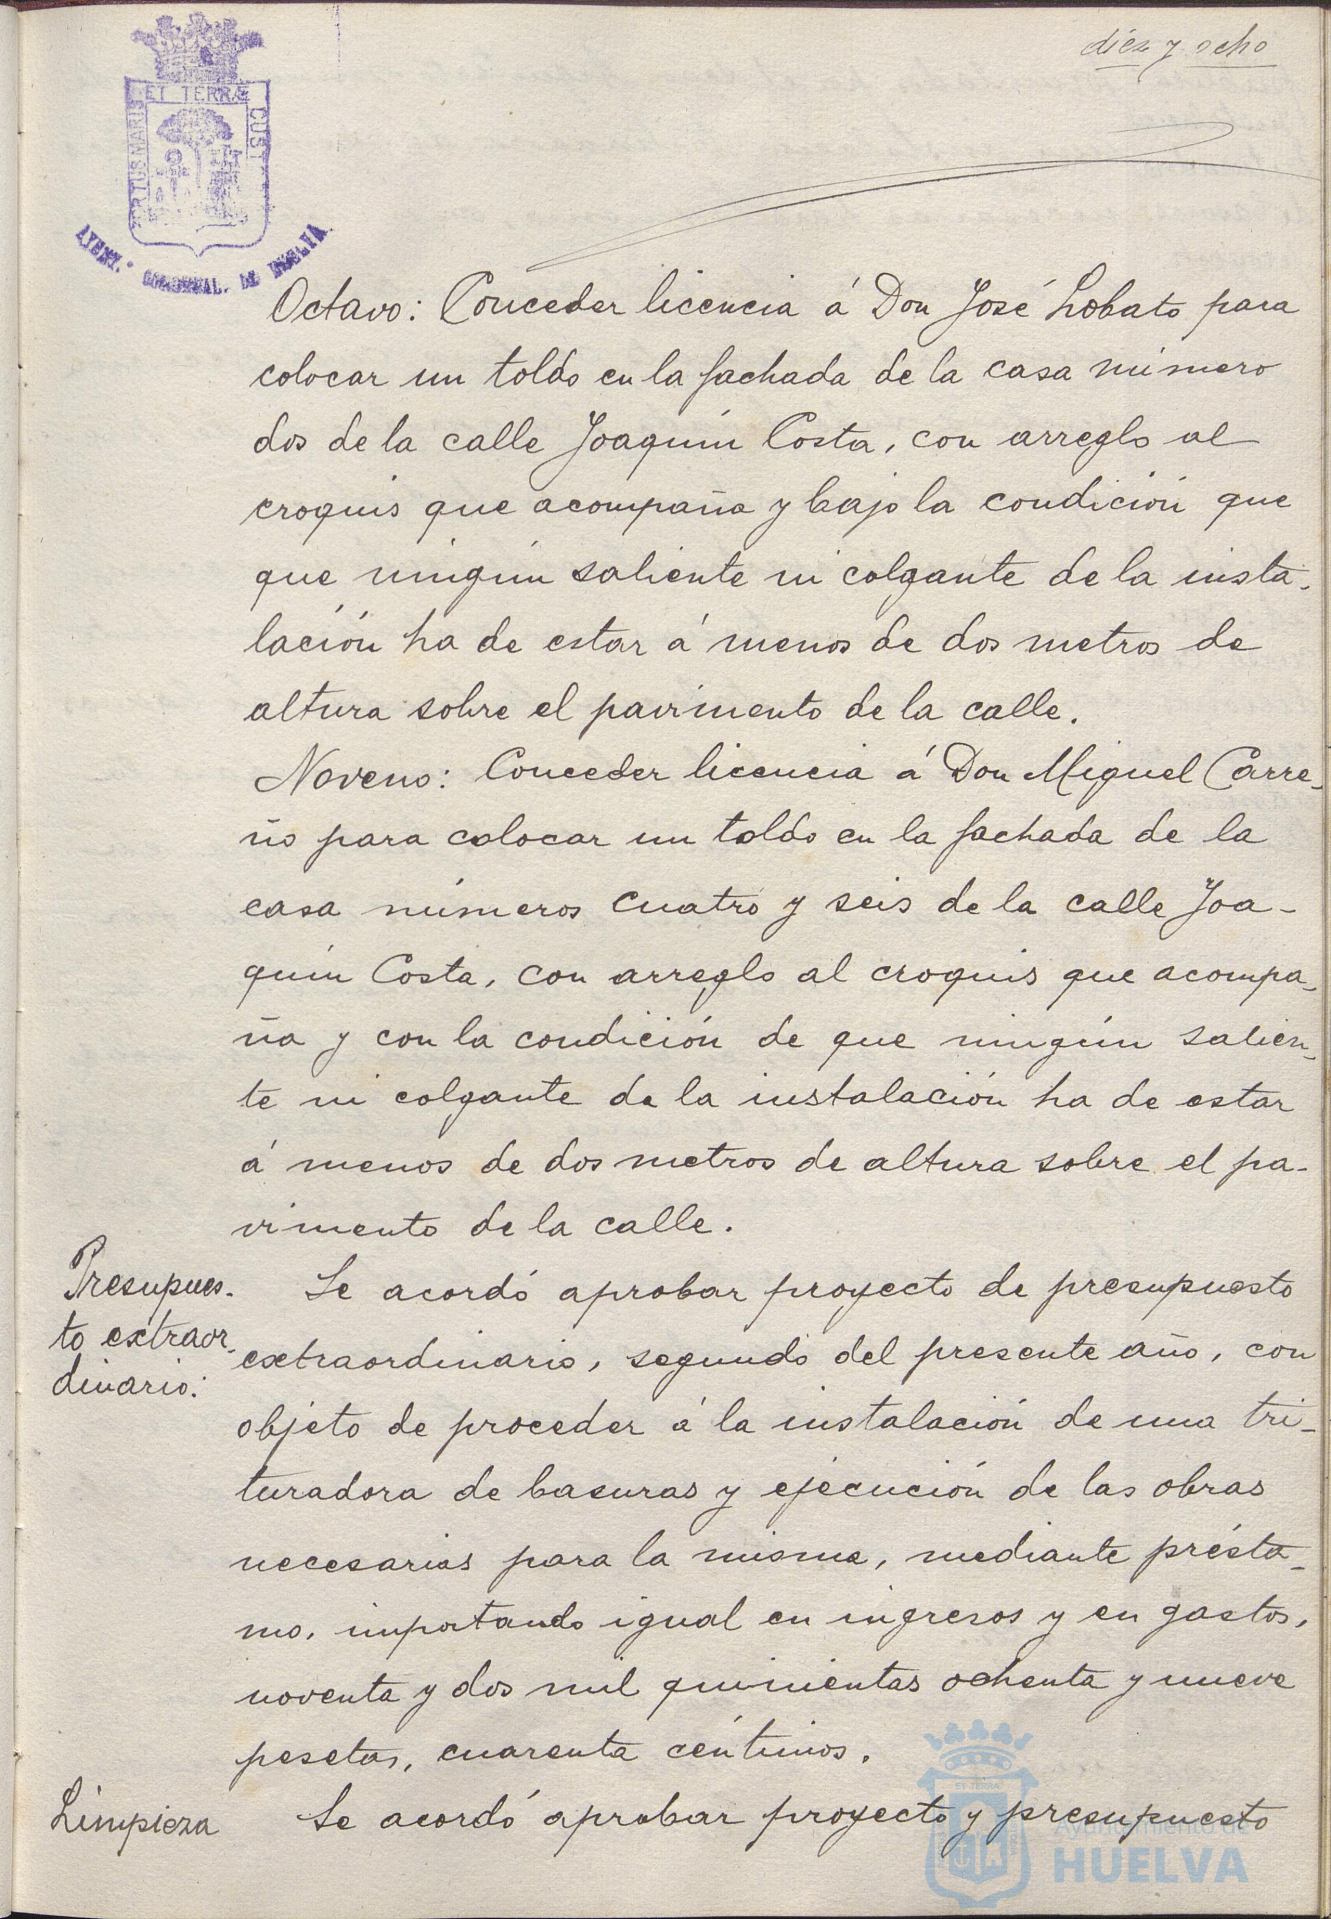 diez y ocho
ET TERRÆ
PORTUS MARIS
CUST
AYUNT. CONSTITUCIONAL. DE HUELVA.
Octavo: Conceder licencia á Don José Lobato para
colocar un toldo en la fachada de la casa número
dos de la calle Joaquín Costa, con arreglo al
croquis que acompaña y bajo la condición que
que ningún saliente ni colgante de la insta-
lación ha de estar á menos de dos metros de
altura sobre el pavimento de la calle.
Noveno: Conceder licencia á Don Miguel Carre-
ño para colocar un toldo en la fachada de la
casa números cuatro y seis de la calle Joa-
quín Costa, con arreglo al croquis que acompa-
ña y con la condición de que ningún salien-
te ni colgante de la instalación ha de estar
á menos de dos metros de altura sobre el pa-
vimento de la calle.
Presupues-
to extraor-
dinario:
Se acordó aprobar proyecto de presupuesto
extraordinario, segundo del presente año, con
objeto de proceder á la instalación de una tri-
turadora de basuras y ejecución de las obras
necesarias para la misma, mediante présta-
mo, importando igual en ingresos y en gastos,
noventa y dos mil quinientas ochenta y nueve
pesetas, cuarenta céntimos.
Limpieza
Se acordó aprobar proyecto y presupuesto
ET TERRA
Ayuntamiento de
HUELVA